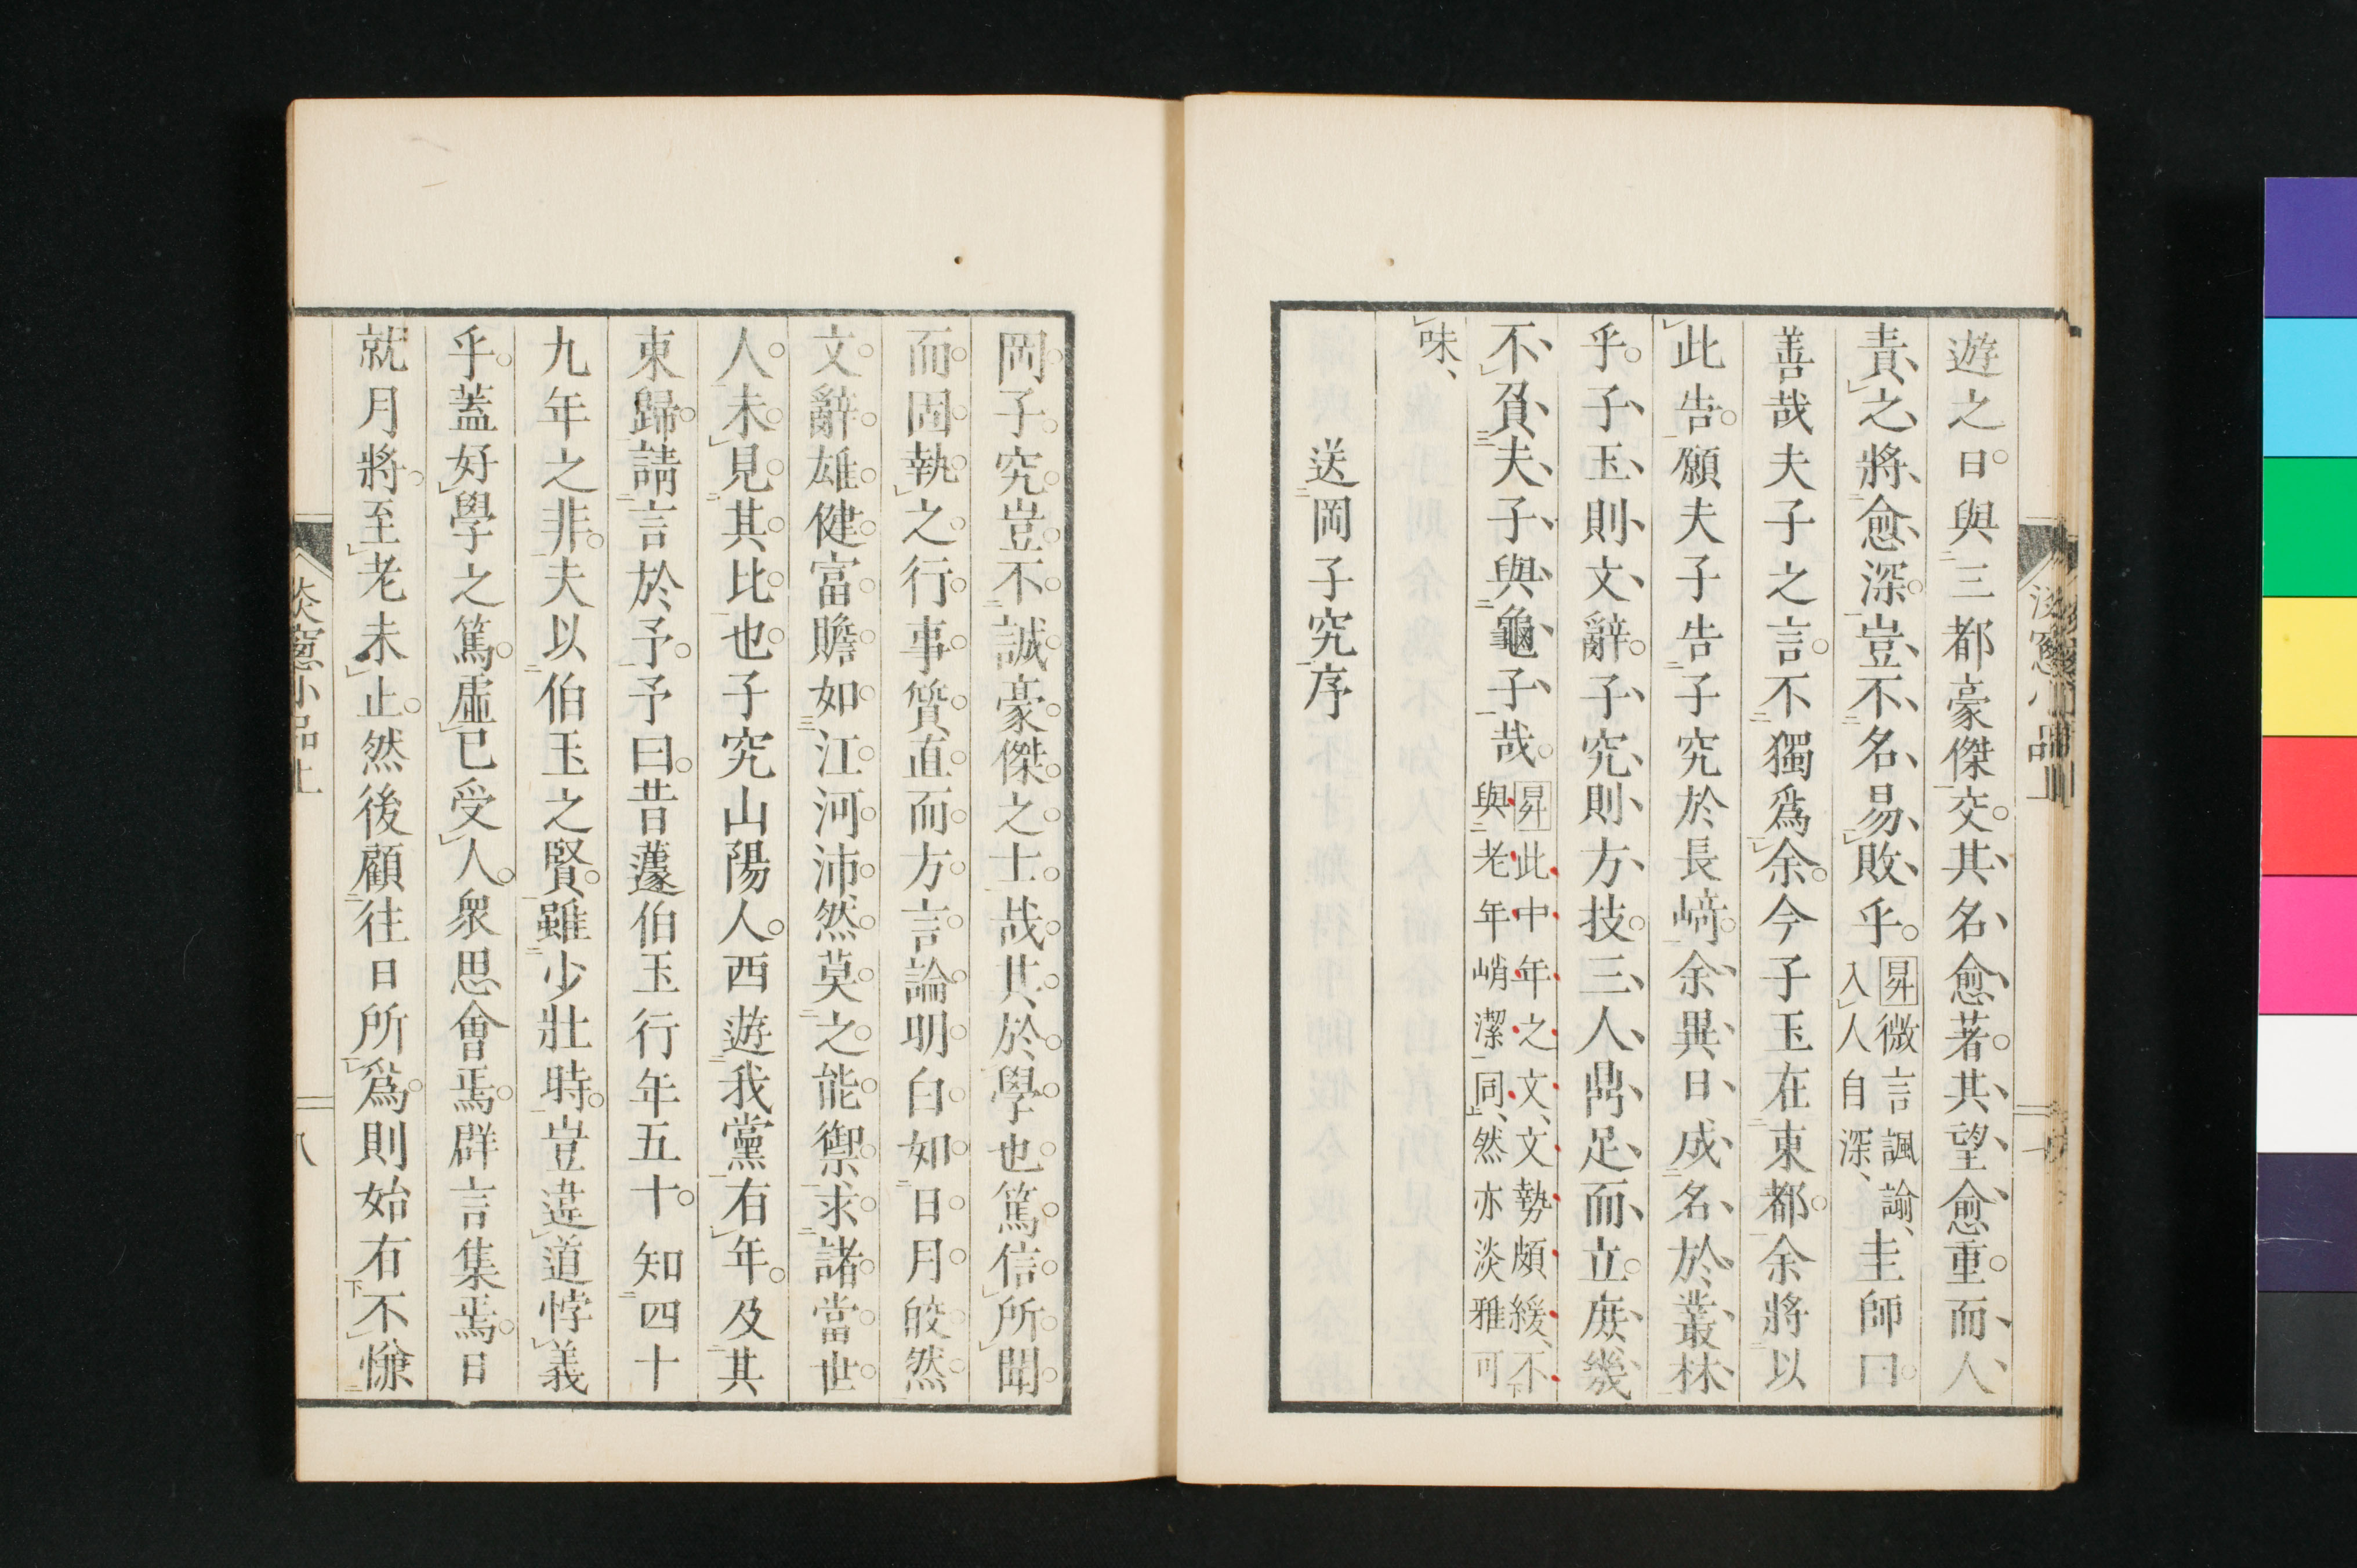 遊之日與三都豪傑交其名愈著其望愈重而人
責之將愈深豈不名易敗乎昇微言諷諭入人自深圭師曰
善哉夫子之言不獨爲余今子玉在東都余將以
此告願夫子告子究於長﨑余異日成名於叢林
乎子玉則文辭子究則方技三人鼎足而立庶幾
不負夫子與龜子哉昇此中年之文文勢頗緩不與老年峭潔同然亦淡雅可
味
送岡子究序
岡子究豈不誠豪傑之士哉其於學也篤信所聞
而固執之行事質直而方言論明白如日月皎然
文辭雄健富贍如江河沛然莫之能禦求諸當世
人未見其比也子究山陽人西遊我黨右年及其
東歸請言於予予曰昔蘧伯玉行年五十知四十
九年之非夫以伯玉之賢雖少壯時豈違道悖義
乎蓋好學之篤虛已受人衆思會焉群言集焉日
就月將至老未止然後顧往日所爲則始右不慊
淡窻小品上
八